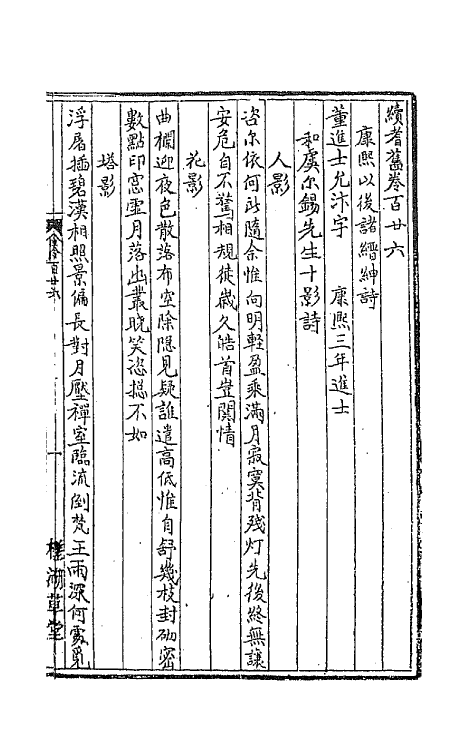 續耆舊卷百廿六
康熙以後諸縉紳詩
董進士允汴字　康熙三年進士
和虞尔錫先生十影詩
人影
咨尔依何此隨余惟向明輕盈乘滿月寂寞背殘灯先後終無讓
安危自不驚相規徒歲久皓首豈関情
花影
曲欄迎夜色散落布空除隠見疑誰遣高低惟自舒幾枝封砌密
數點印窓虛月落幽叢晚笑恣摠不如
塔影
浮屠插碧漢相照景偏長對月壓禪室臨流倒梵王雨深何處覓
百廿六
一
槎湖草堂